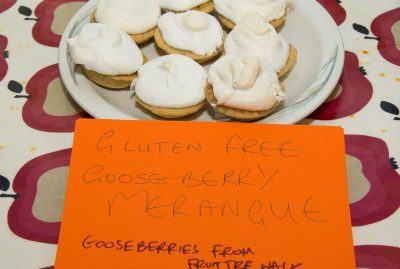 GLUTEN FREE
GOOSEBERRY
MERANGUE
GOOSEBERRIES FROM
FRUIT TRE WALK